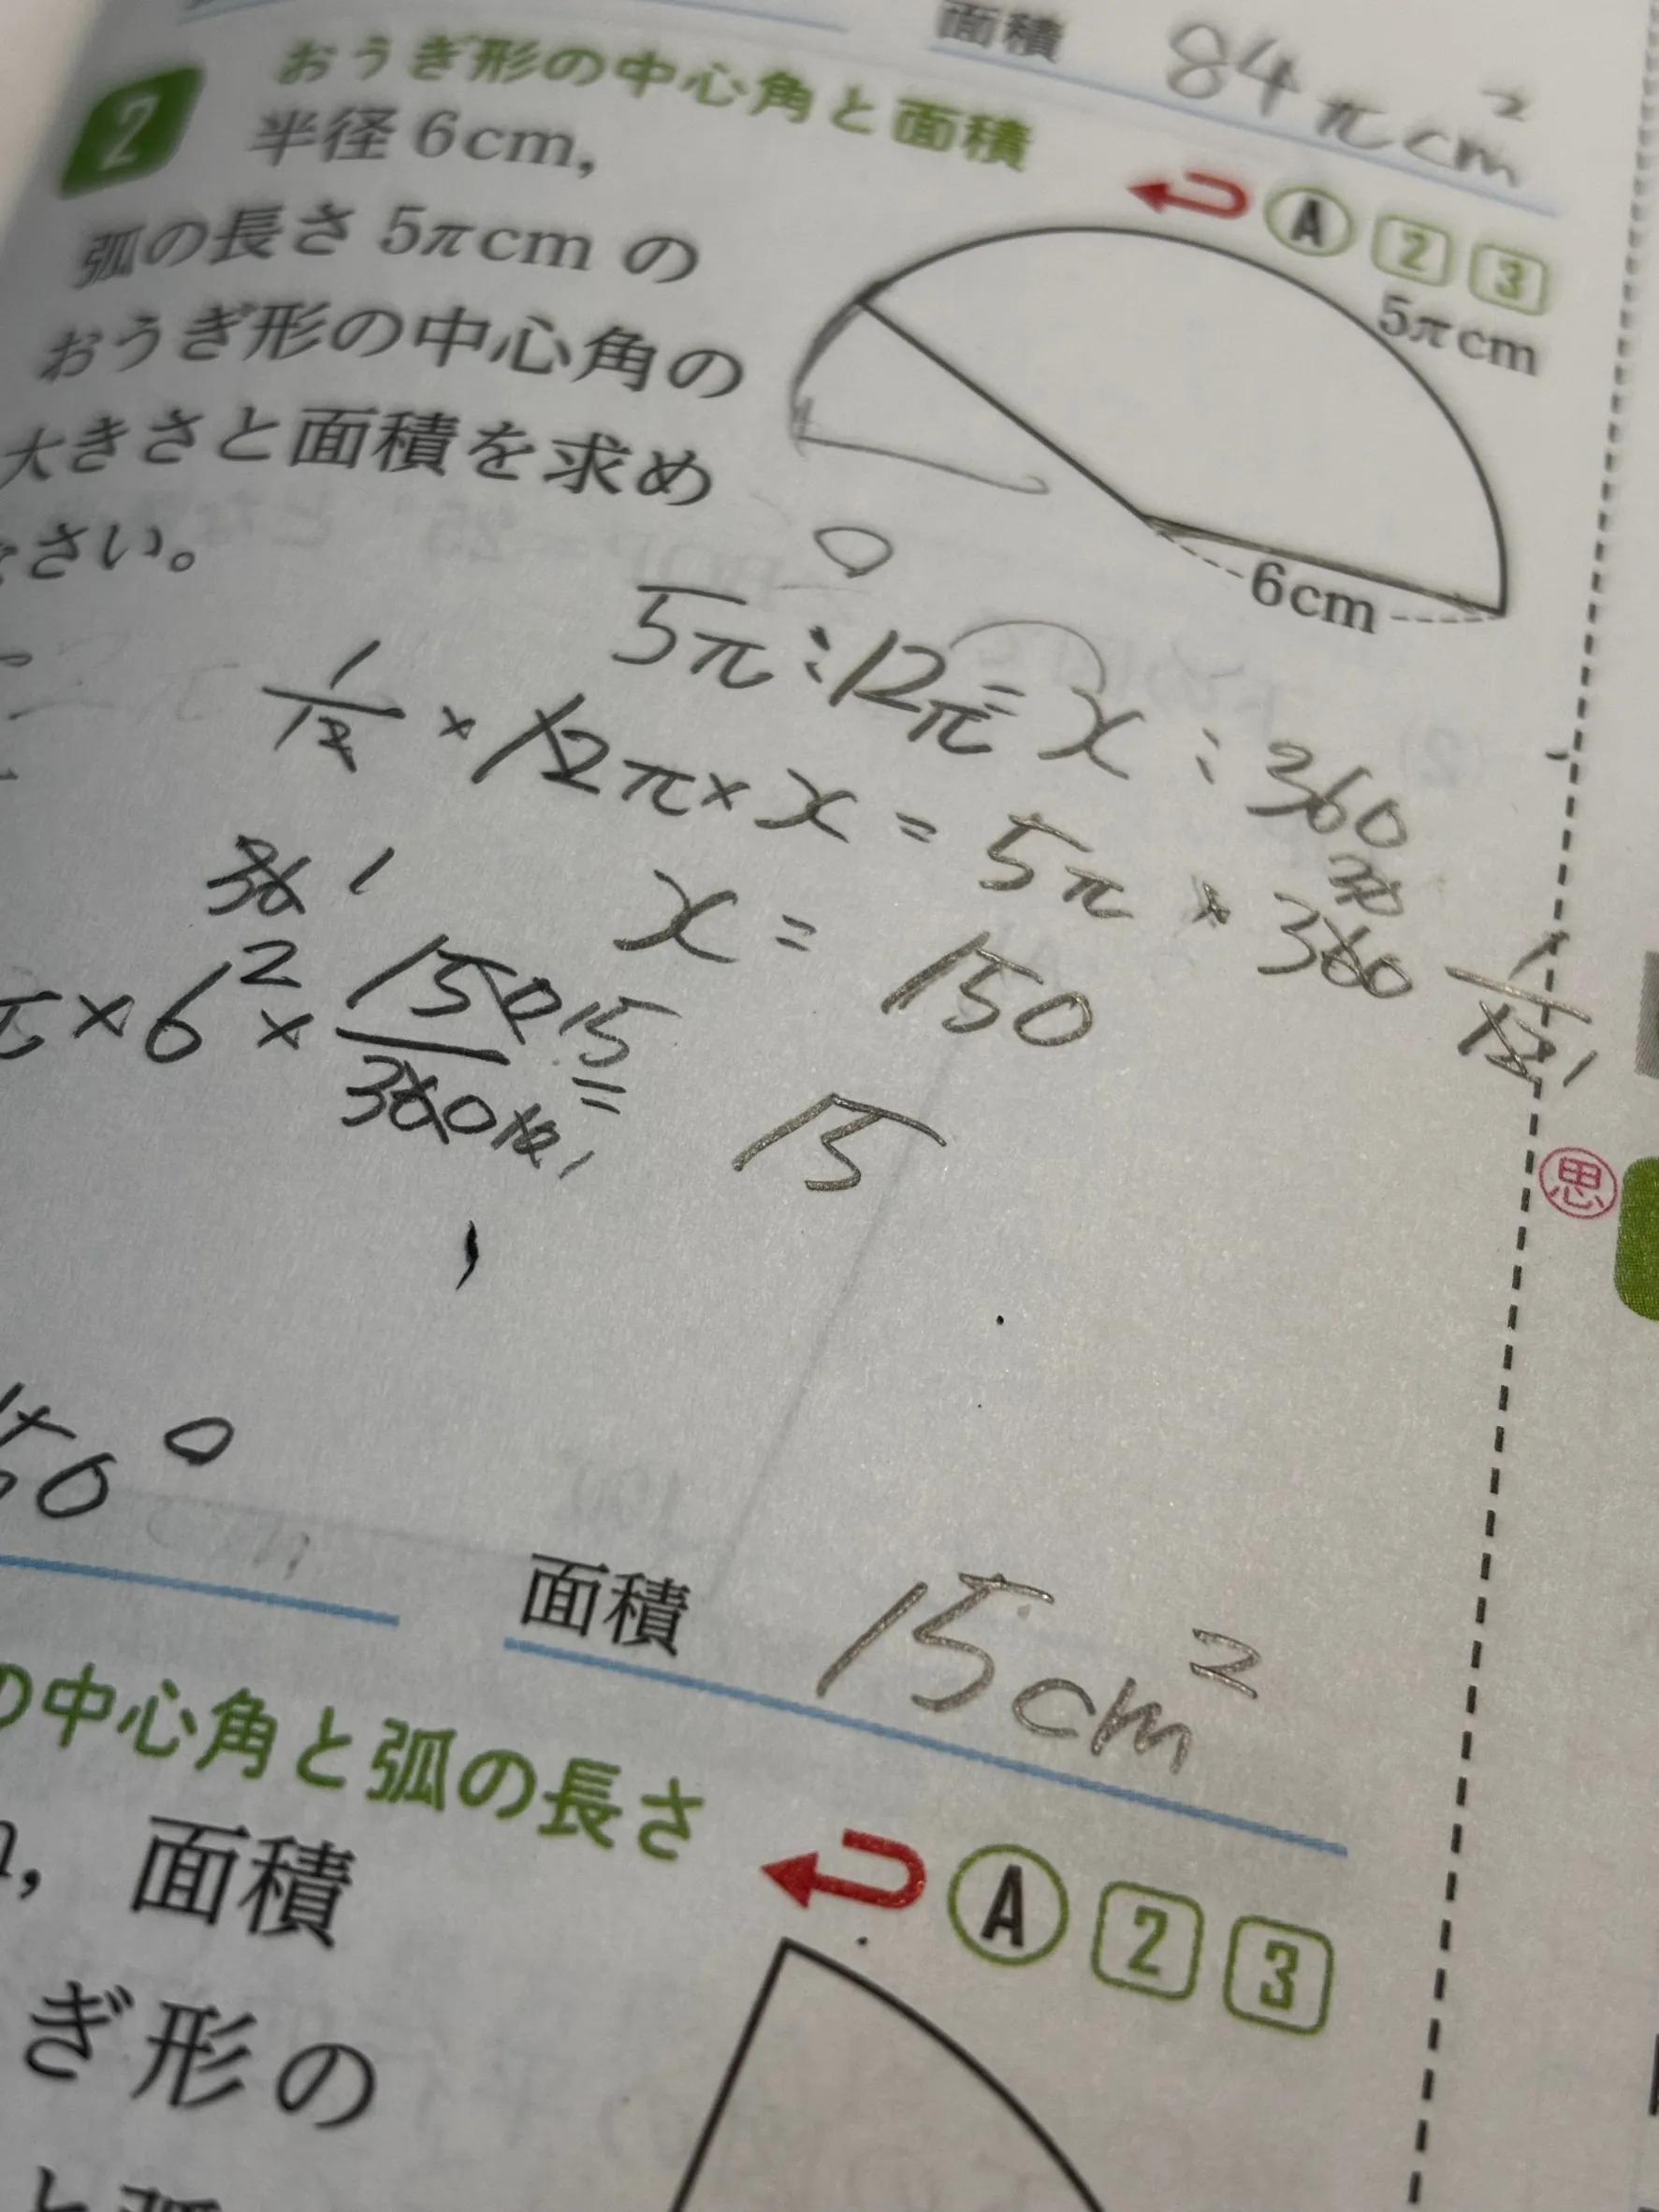 面積 84πcm²
2 おうぎ形の中心角と面積
A 2 3
半径6cm,
弧の長さ5πcmの
おうぎ形の中心角の
大きさと面積を求め
さい。
5πcm
6cm
5π:12π=x:360
1/12×12π×x=5π×360 1/12 1
x=150
36 1
×6²×150/360 15
=15
思
50°
面積 15cm²
の中心角と弧の長さ
A 2 3
, 面積
ぎ形の